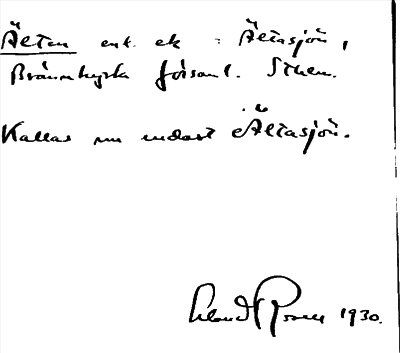 Älten enl. ek = Ältasjön,
Brännkyrka församl. Sthlm.
Kallas nu endast Ältasjön.
1930.